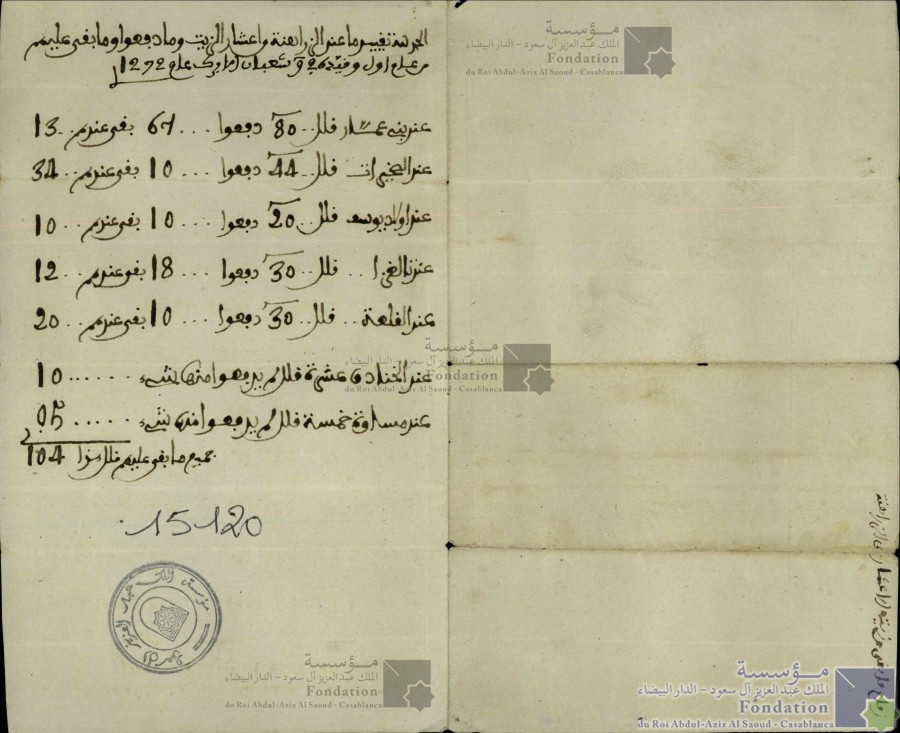 الحمد لله تقييد ما عند الزراهنة واعشار الزيت وما دفعوا وما بقى عليهم
من عام اول وقيد في 9 شعبان المبارك عام 1272
عند بني عمار فلل .. 80 دفعوا ... 67 بقى عندهم .. 13
عند فلل .. 44 دفعوا ... 10 بقى عندهم .. 34
عند اولاد يوسف فلل .. 20 دفعوا ... 10 بقى عندهم .. 10
عند .. فلل .. 30 دفعوا ... 18 بقى عندهم .. 12
عند القلعة .. فلل .. 30 دفعوا ... 10 بقى عندهم .. 20
عند الخنادق عشرة فلل لم يدفعوا منها شيء ...... 10
عند مساوة خمسة فلل لم يدفعوا منها شيء ..... 05
جميع ما بقى عليهم فلل هذا 104
15120
مؤسسة الملك عبد العزيز
مؤسسة
الملك عبد العزيز آل سعود - الدار البيضاء
Fondation
du Roi Abdul-Aziz Al Saoud - Casablanca
مؤسسة
الملك عبد العزيز آل سعود - الدار البيضاء
Fondation
du Roi Abdul-Aziz Al Saoud - Casablanca
مؤسسة
الملك عبد العزيز آل سعود - الدار البيضاء
Fondation
du Roi Abdul-Aziz Al Saoud - Casablanca
مؤسسة
الملك عبد العزيز آل سعود - الدار البيضاء
Fondation
du Roi Abdul-Aziz Al Saoud - Casablanca